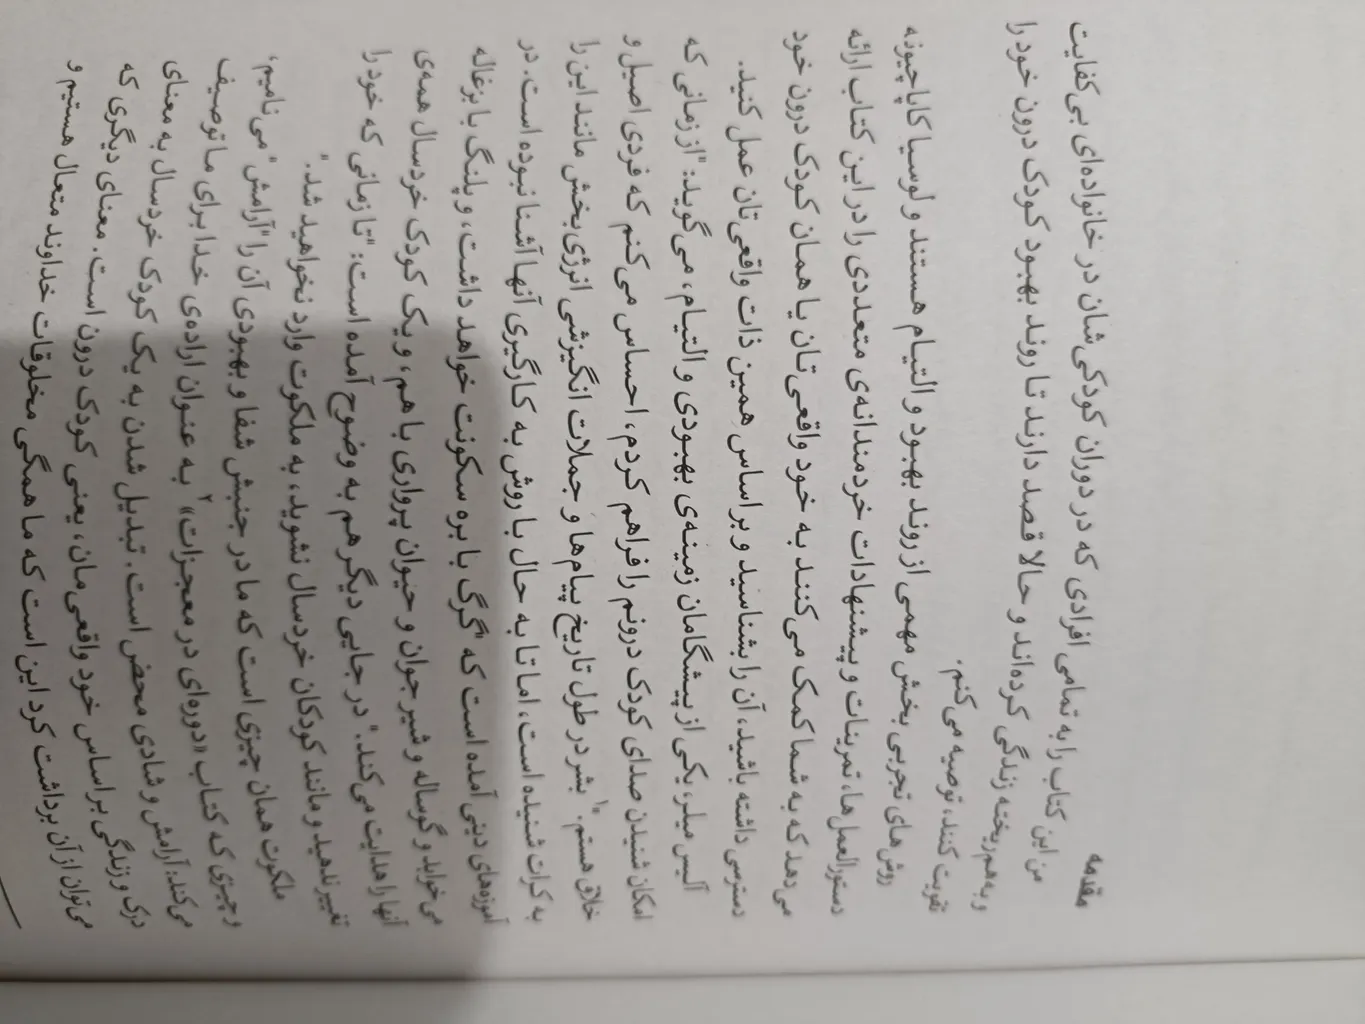 مقدمه
من این کتاب را به تمامی افرادی که در دوران کودکی شان در خانواده‌ای بی‌کفایت
و به‌هم‌ریخته زندگی کرده‌اند و حالا قصد دارند تا روند بهبود کودک درون خود را
تقویت کنند، توصیه می‌کنم.
روش‌های تجربی بخش مهمی از روند بهبود و التیام هستند و لوسیا کاپاچیونه
دستورالعمل‌ها، تمرینات و پیشنهادات خردمندانه‌ی متعددی را در این کتاب ارائه
می‌دهد که به شما کمک می‌کنند به خود واقعی‌تان یا همان کودک درون خود
دسترسی داشته باشید، آن را بشناسید و بر اساس همین ذات واقعی‌تان عمل کنید.
آلیس میلر، یکی از پیشگامان زمینه‌ی بهبودی و التیام، می‌گوید: "از زمانی که
امکان شنیدن صدای کودک درونم را فراهم کردم، احساس می‌کنم که فردی اصیل و
خلاق هستم."۱ بشر در طول تاریخ پیام‌ها و جملات انگیزشی انرژی‌بخش مانند این را
به کرات شنیده است، اما تا به حال با روش به کارگیری آنها آشنا نبوده است. در
آموزه‌های دینی آمده است که "گرگ با بره سکونت خواهد داشت، و پلنگ با بزغاله
می‌خوابد و گوساله و شیر جوان و حیوان پرواری با هم، و یک کودک خردسال همه‌ی
آنها را هدایت می‌کند." در جایی دیگر هم به وضوح آمده است: "تا زمانی که خود را
تغییر ندهید و مانند کودکان خردسال نشوید، به ملکوت وارد نخواهید شد."
ملکوت همان چیزی است که ما در جنبش شفا و بهبودی آن را "آرامش" می‌نامیم،
و چیزی که کتاب «دوره‌ای در معجزات»۲ به عنوان اراده‌ی خدا برای ما توصیف
می‌کند: آرامش و شادی محض است. تبدیل شدن به یک کودک خردسال به معنای
درک و زندگی بر اساس خود واقعی‌مان، یعنی کودک درون است. معنای دیگری که
می‌توان از آن برداشت کرد این است که ما همگی مخلوقات خداوند متعال هستیم و